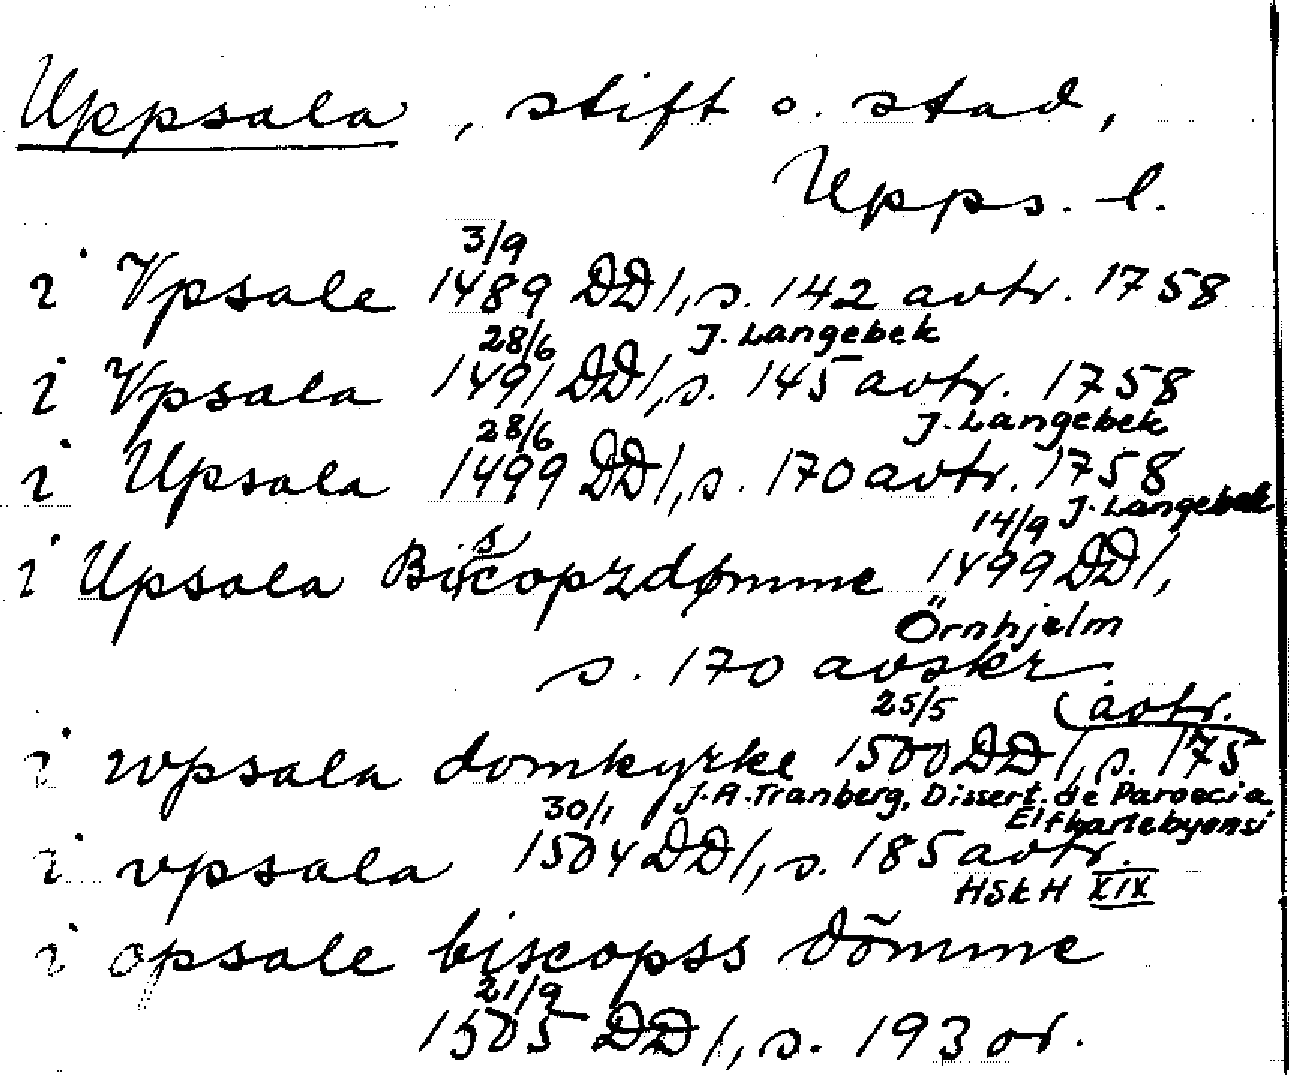 Uppsala, stift o. stad,
Upps. l.
3/9
i Vpsale 1489 DD1, s. 142 avtr. 1758
28/6 J. Langebek
i Vpsala 1491 DD1, s. 145 avtr. 1758
28/6 J. Langebek
i Upsala 1499 DD1, s. 170 avtr. 1758
14/9 J. Langebek
i Upsala Biscopzdømme 1499 DD1,
Örnhjelm
s. 170 avskr.
25/5 (avtr.
i wpsala domkyrke 1500 DD1, s. 175
30/1 J.A. Tranberg, Dissert. de Paroecia
Elfkarlebyensi
i vpsala 1504 DD1, s. 185 avtr.
HSkH XIX
i opsale biscopss dõmme
21/9
1505 DD1, s. 193 or.